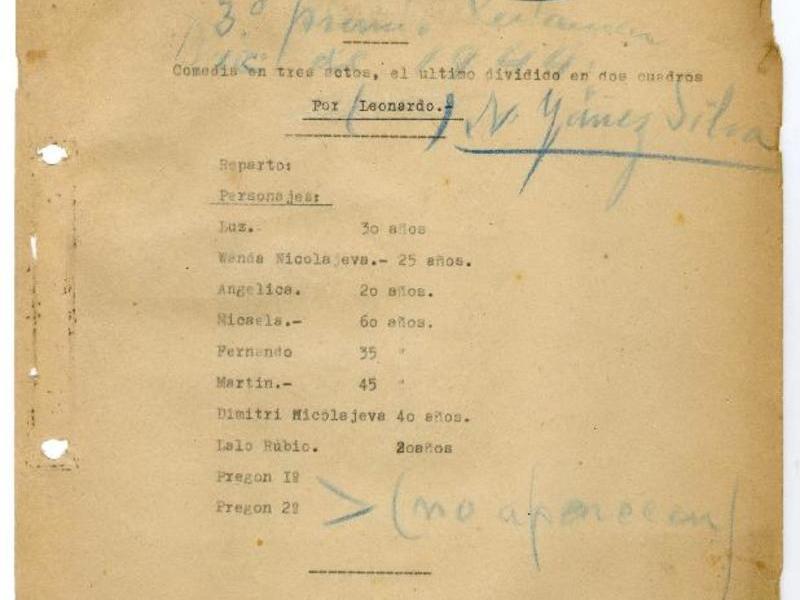 3º premio
de 1944.
Comedia en tres actos, el ultimo dividido en dos cuadros
Por Leonardo.- ( ) N. Yáñez Silva
Reparto:
Personajes:
Luz.- 30 años
Wanda Nicolajeva.- 25 años.
Angelica. 20 años.
Micaela.- 60 años.
Fernando 35 "
Martin.- 45 "
Dimitri Nicolajeva 40 años.
Lalo Rubio. 20años
Pregon 1º
Pregon 2º > (no aparecen)